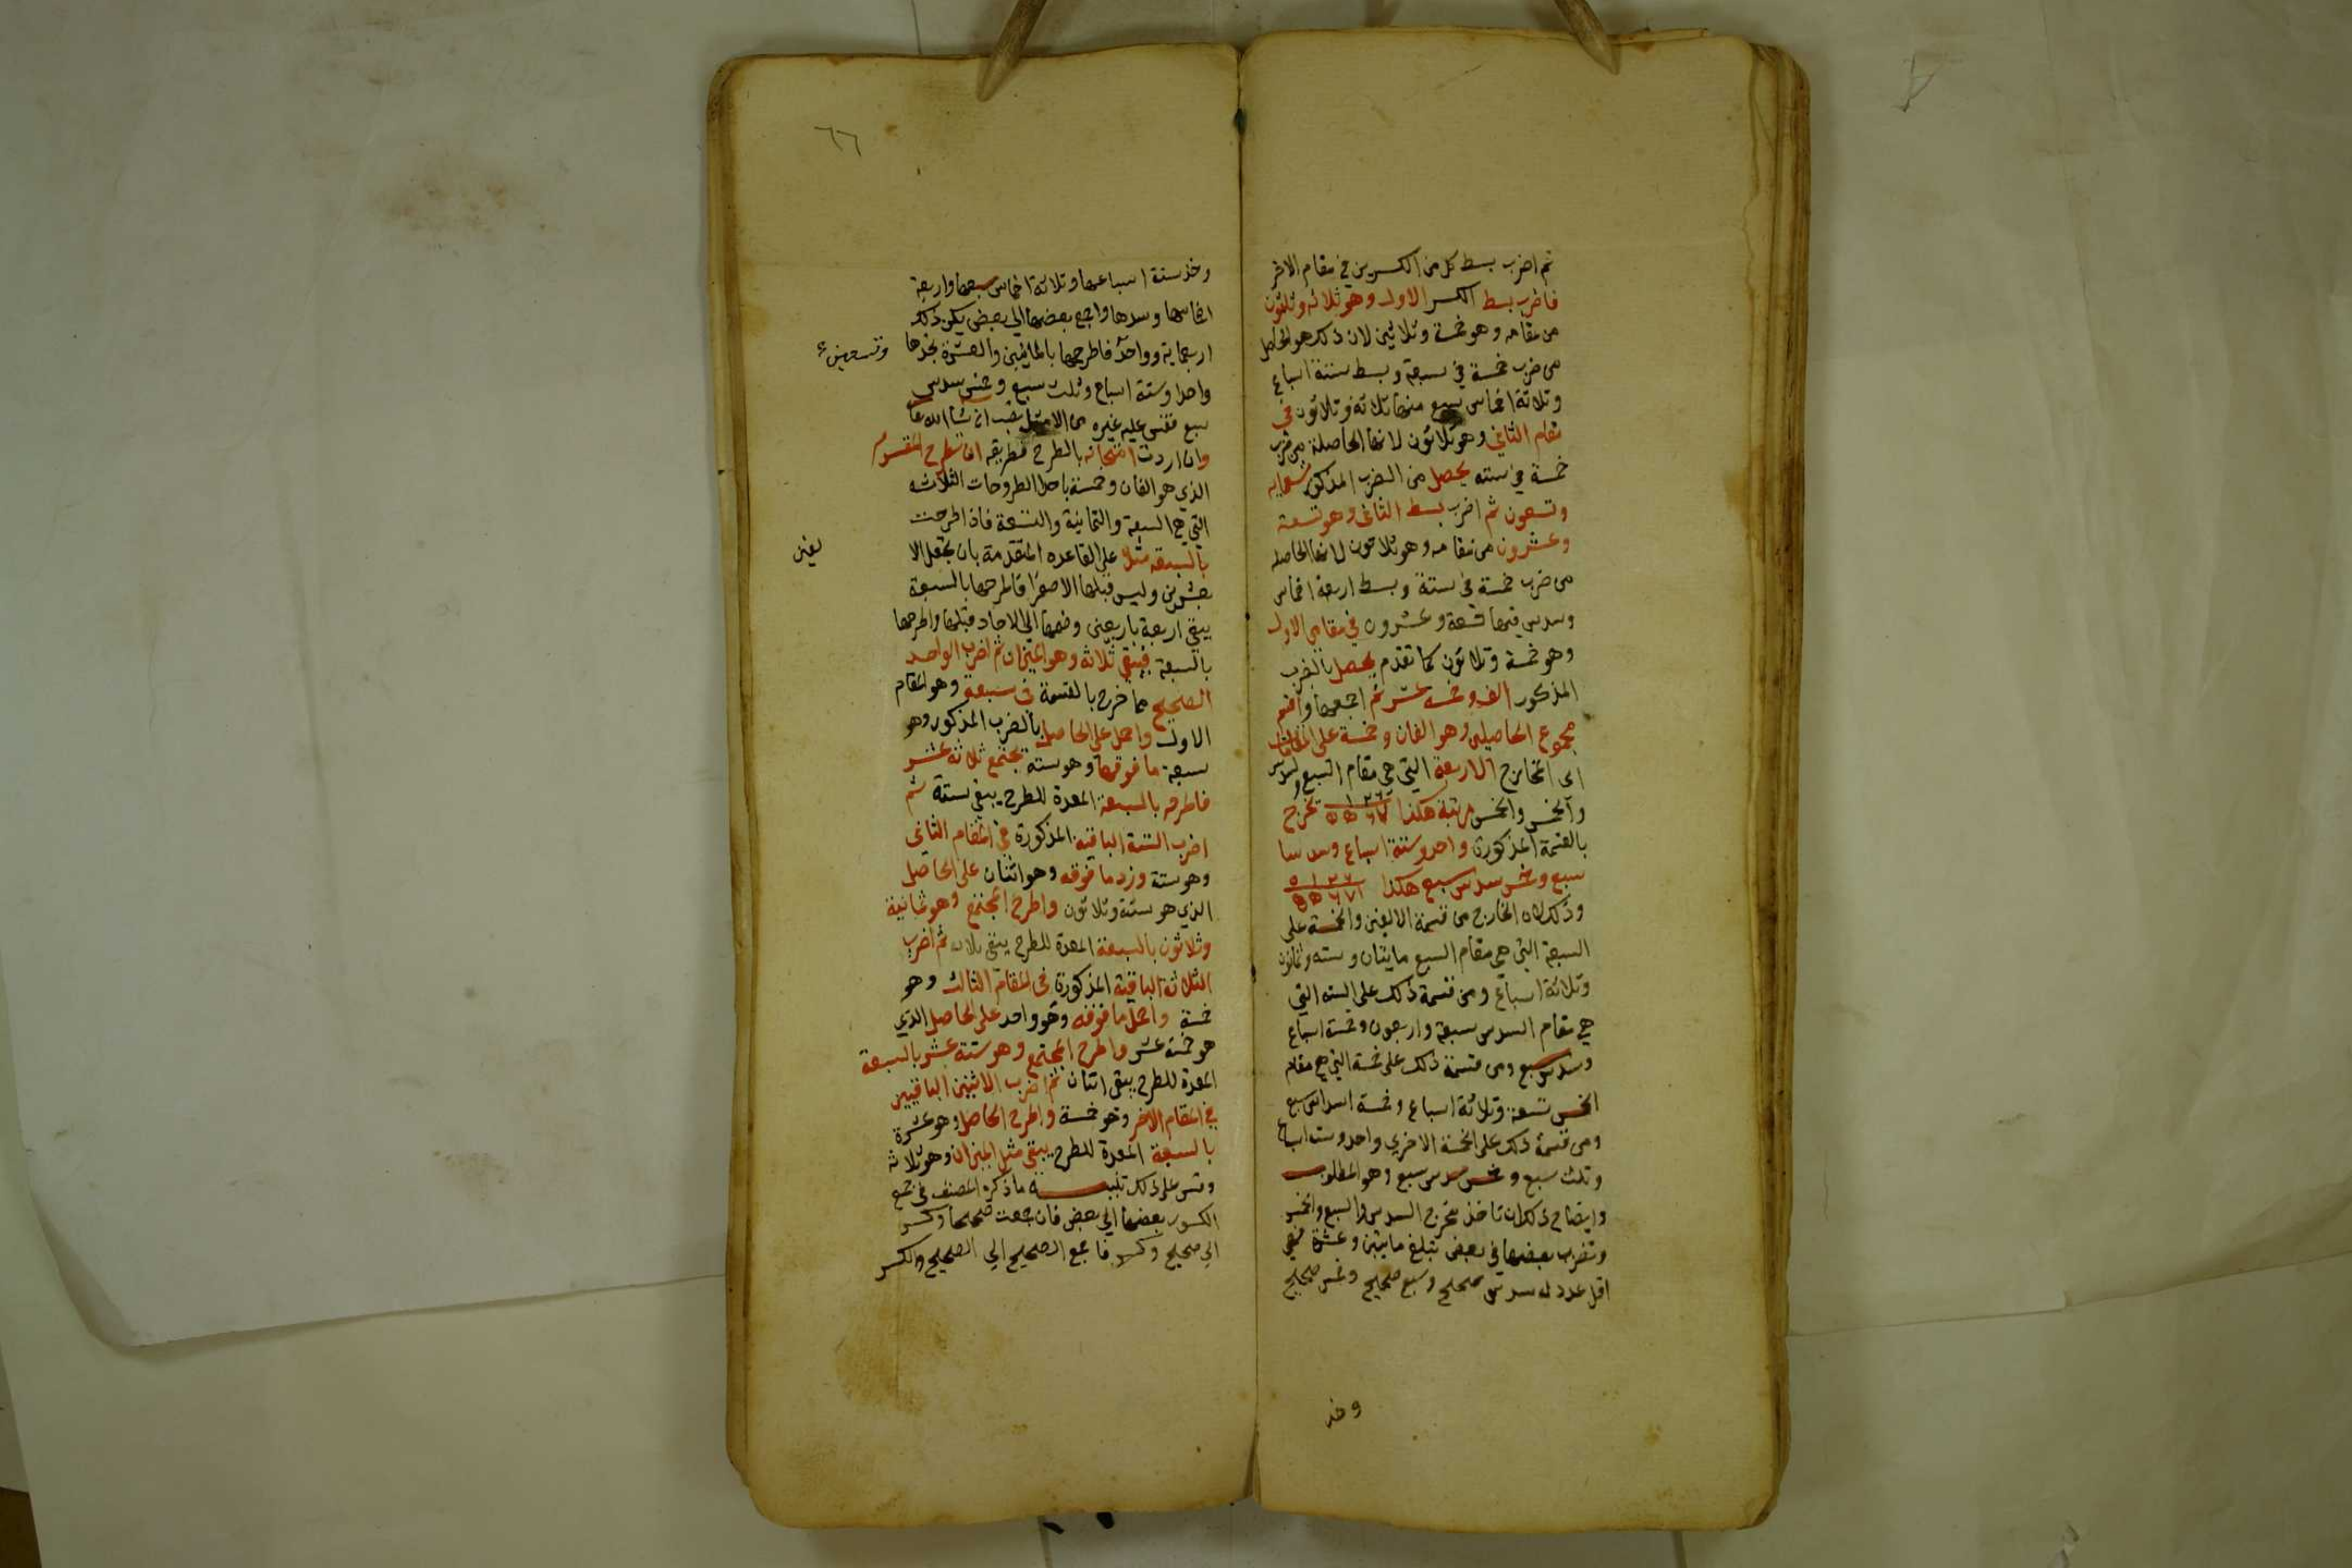 ثم اضرب بسط كل من الكسرين في مقام الاخر
فاضرب بسط الكسر الاول وهو ثلاثه وثلثون
من مقامه وهو خمسة وثلاثين لان ذلك هو الحاصل
من ضرب خمسة في سبعة وبسط ستة اسباع
وثلاثة اخماس سبع منها ثلاثة وثلاثون في
مقام الثاني وهو ثلاثون لانها الحاصلة من ضرب
خمسة في سته يحصل من الضرب المذكور تسعمايه
وتسعون ثم اضرب بسط الثاني وهو تسعة
وعشرون من مقامه وهو ثلاثون لانها الحاصله
من ضرب خمسة في ستة وبسط اربعة اخماس
وسدس فيها تسعة وعشرون في مقام الاول
وهو خمسة وثلاثون كما تقدم يحصل بالضرب
المذكور الف وخمسه عشر ثم اجمعهما واقسم
مجموع الحاصلين وهو الفان وخمسة على المقامات
اى المخارج الاربعة التي هي مقام السبع والسدس
والخمس والخمس مرتبة هكذا تخرج
بالقسمة المذكورة واحد وستة اسباع وسدسا
سبع وخمس سدس سبع هكذا
وذلك لان الخارج من قسمة الالفين والخمسة على
السبعة التي هي مقام السبع مايتان وسته وثمانون
وثلاثة اسباع ومن قسمة ذلك على الستة التي
هي مقام السدس سبعة واربعون وخمسة اسباع
وسدس سبع ومن قسمة ذلك على خمسة التي هي مقام
الخمس تسعة وثلاثة اسباع وخمسة اسداس سبع
ومن قسمة ذلك على الخمسة الاخري واحد وستة اسباع
وثلث سبع وخمس سدس سبع وهو المطلوب
وايضاح ذلك ان تاخذ مخرج السدس والسبع والخمس
وتضرب بعضها في بعض تبلغ مايتين وعشرة فهي
اقل عدد له سدس صحيح وسبع صحيح وخمس صحيح
وخذ
٦٦
وخذ ستة اسباعها وثلاثة اخماس سبعها واربعة
اخماسها وسدسها واجمع بعضها الي بعض يكن ذلك
اربعماية وواحد فاطرحها بالمائتين والعشرة تجدها
واحدا وستة اسباع وثلث سبع وخمس سدس
سبع فقس عليه غيره من الامثل تصب ان شا الله تعا
وان اردت امتحانه بالطرح فطريقه ان تطرح المقسوم
الذي هو الفان وخمسة باحد الطروحات الثلاثه
التي هي السبعة والثمانية والتسعة فاذا طرحت
بالسبعه مثلا على القاعده المتقدمة بان تجعل الا
لفين
بعشرين وليس قبلها الا صفرا فاطرحها بالسبعة
يبقي اربعة باربعين وضمها الي الاحاد قبلها واطرحها
بالسبعة فيبقي ثلاثة وهو الميزان ثم اضرب الواحد
الصحيح مما خرج بالقسمة في سبعة وهو المقام
الاول واحمل على الحاصل بالضرب المذكور وهو
سبعة ما فوقها وهو ستة يجتمع ثلاثة عشر
فاطرحه بالسبعة المعدة للطرح يبقي ستة ثم
اضرب الستة الباقية المذكورة في المقام الثاني
وهو ستة وزد ما فوقه وهو اثنان على الحاصل
الذي هو ستة وثلاثون واطرح المجتمع وهو ثمانية
وثلاثون بالسبعة المعدة للطرح يبقى ثلاث ثم اضرب
الثلاثة الباقية المذكورة في المقام الثالث وهو
خمسة واحمل ما فوقه وهو واحد على الحاصل الذي
هو خمسة عشر واطرح المجتمع وهو ستة عشر بالسبعة
المعدة للطرح يبقى اثنان ثم اضرب الاثنين الباقيين
في المقام الاخر وهو خمسة واطرح الحاصل وهو عشرة
بالسبعة المعدة للطرح يبقى مثل الميزان وهو ثلاثة
وقس على ذلك تنبيه ما ذكره المصنف في جمع
الكسور بعضها الي بعض فان جمعت صحيحا وكسر
الي صحيح وكسر فاجمع الصحيح الي الصحيح والكسر